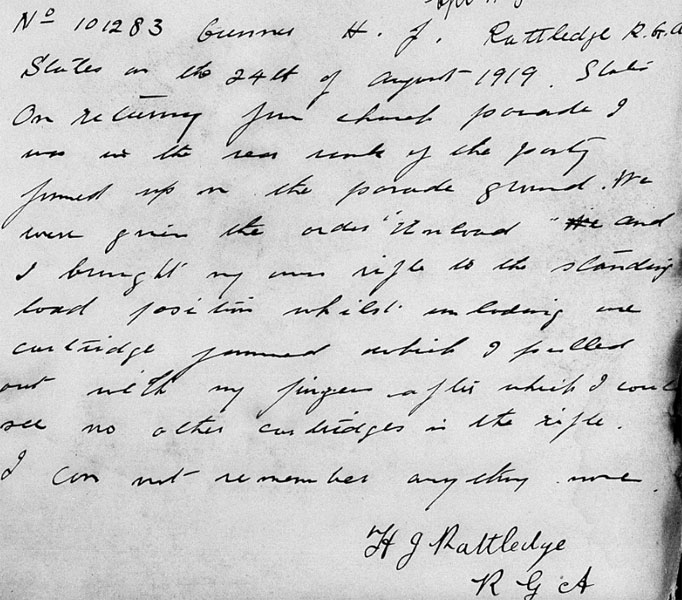 No 101283 Gunner H. J. Rattledge R.G.A
States on the 24th of August 1919. States
On returning from church parade I
was in the rear rank of the party
formed up on the parade ground. We
were given the order "Unload" and
I brought my own rifle to the standing
load position whilst unloading one
cartridge jammed which I pulled
out with my fingers after which I could
see no other cartridges in the rifle.
I can not remember anything more.
H J Rattledge
R G A